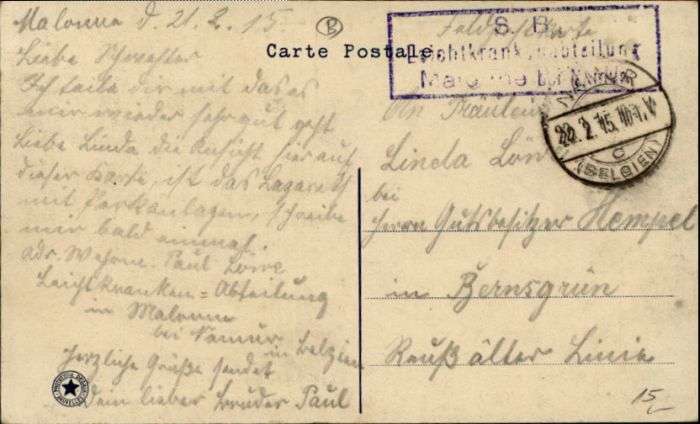 Malonne d. 21.2.15
Liebe Schwester
Ich teile dir mit das es
mir wieder sehr gut geht
Liebe Linda die Ansicht hier auf
dieser Karte ist das Lazareth
mit Parkanlagen, schreibe
mir bald einmal.
adr. Wehrm. Paul Löwe
Leichtkranken=Abteilung
in Malonne
bei Namur in Belgien
Herzliche Grüße sendet
Dein lieber Bruder Paul
B
Carte Postale
Feldpostkarte
S. B.
Leichtkrankenabteilung
Malonne bei Namur
NAMUR
22.2.15. 10-11.V
C
(BELGIEN)
An Fräulein
Linda
bei
Herrn Gutsbesitzer Hempel
in Bernsgrün
Reuß älter Linie
15,-